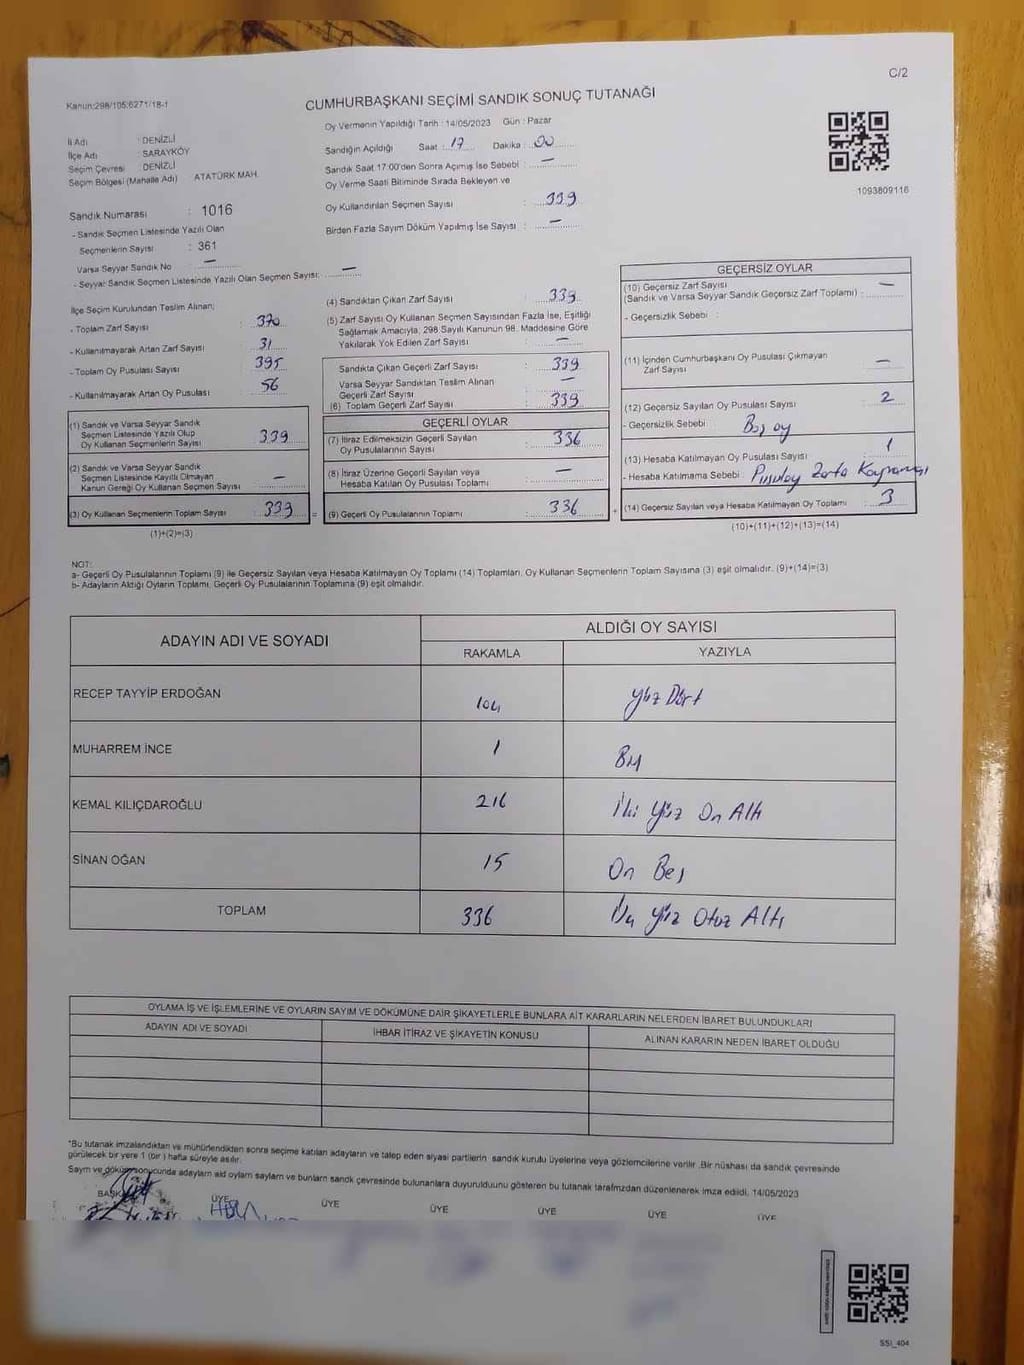 C/2
Kanun:298/105;6271/18-1
CUMHURBAŞKANI SEÇİMİ SANDIK SONUÇ TUTANAĞI
İl Adı : DENİZLİ
İlçe Adı : SARAYKÖY
Seçim Çevresi : DENİZLİ
Seçim Bölgesi (Mahalle Adı) ATATÜRK MAH.
Sandık Numarası : 1016
- Sandık Seçmen Listesinde Yazılı Olan
Seçmenlerin Sayısı : 361
Varsa Seyyar Sandık No : —
- Seyyar Sandık Seçmen Listesinde Yazılı Olan Seçmen Sayısı: —
Oy Vermenin Yapıldığı Tarih : 14/05/2023 Gün : Pazar
Sandığın Açıldığı Saat : 17 Dakika : 00
Sandık Saat 17:00'den Sonra Açımış İse Sebebi : —
Oy Verme Saati Bitiminde Sırada Bekleyen ve
Oy Kullandırılan Seçmen Sayısı : 339
Birden Fazla Sayım Döküm Yapılmış İse Sayısı : —
1093809116
İlçe Seçim Kurulundan Teslim Alınan;
- Toplam Zarf Sayısı : 370
- Kullanılmayarak Artan Zarf Sayısı : 31
- Toplam Oy Pusulası Sayısı : 395
- Kullanılmayarak Artan Oy Pusulası : 56
(1) Sandık ve Varsa Seyyar Sandık
Seçmen Listesinde Yazılı Olup
Oy Kullanan Seçmenlerin Sayısı : 339
(2) Sandık ve Varsa Seyyar Sandık
Seçmen Listesinde Kayıtlı Olmayan
Kanun Gereği Oy Kullanan Seçmen Sayısı : —
(3) Oy Kullanan Seçmenlerin Toplam Sayısı : 339
(1)+(2)=(3)
(4) Sandıktan Çıkan Zarf Sayısı : 339
(5) Zarf Sayısı Oy Kullanan Seçmen Sayısından Fazla İse, Eşitliği
Sağlamak Amacıyla, 298 Sayılı Kanunun 98. Maddesine Göre
Yakılarak Yok Edilen Zarf Sayısı : —
Sandıkta Çıkan Geçerli Zarf Sayısı : 339
Varsa Seyyar Sandıktan Teslim Alınan
Geçerli Zarf Sayısı : —
(6) Toplam Geçerli Zarf Sayısı : 339
GEÇERLİ OYLAR
(7) İtiraz Edilmeksizin Geçerli Sayılan
Oy Pusulalarının Sayısı : 336
(8) İtiraz Üzerine Geçerli Sayılan veya
Hesaba Katılan Oy Pusulası Toplamı : —
= (9) Geçerli Oy Pusulalarının Toplamı : 336
GEÇERSİZ OYLAR
(10) Geçersiz Zarf Sayısı
(Sandık ve Varsa Seyyar Sandık Geçersiz Zarf Toplamı) : —
- Geçersizlik Sebebi :
(11) İçinden Cumhurbaşkanı Oy Pusulası Çıkmayan
Zarf Sayısı : —
(12) Geçersiz Sayılan Oy Pusulası Sayısı : 2
- Geçersizlik Sebebi : Boş oy
(13) Hesaba Katılmayan Oy Pusulası Sayısı : 1
- Hesaba Katılmama Sebebi : Pusulay Zarfa Koymamış
+ (14) Geçersiz Sayılan veya Hesaba Katılmayan Oy Toplamı : 3
(10)+(11)+(12)+(13)=(14)
NOT:
a- Geçerli Oy Pusulalarının Toplamı (9) ile Geçersiz Sayılan veya Hesaba Katılmayan Oy Toplamı (14) Toplamları, Oy Kullanan Seçmenlerin Toplam Sayısına (3) eşit olmalıdır. (9)+(14)=(3)
b- Adayların Aldığı Oyların Toplamı, Geçerli Oy Pusulalarının Toplamına (9) eşit olmalıdır.
ADAYIN ADI VE SOYADI ALDIĞI OY SAYISI
RAKAMLA YAZIYLA
RECEP TAYYİP ERDOĞAN 104 Yüz Dört
MUHARREM İNCE 1 Bir
KEMAL KILIÇDAROĞLU 216 İki Yüz On Altı
SİNAN OĞAN 15 On Beş
TOPLAM 336 Üç Yüz Otuz Altı
OYLAMA İŞ VE İŞLEMLERİNE VE OYLARIN SAYIM VE DÖKÜMÜNE DAİR ŞİKAYETLERLE BUNLARA AİT KARARLARIN NELERDEN İBARET BULUNDUKLARI
ADAYIN ADI VE SOYADI İHBAR İTİRAZ VE ŞİKAYETİN KONUSU ALINAN KARARIN NEDEN İBARET OLDUĞU
*Bu tutanak imzalandıktan ve mühürlendikten sonra seçime katılan adayların ve talep eden siyasi partilerin sandık kurulu üyelerine veya gözlemcilerine verilir .Bir nüshası da sandık çevresinde
görülecek bir yere 1 (bir ) hafta süreyle asılır.
Sayım ve döküm sonucunda adayların ald oyların sayların ve bunların sandk çevresinde bulunanlara duyurulduunu gösteren bu tutanak tarafmzdan düzenlenerek imza edildi. 14/05/2023
BAŞKAN ÜYE ÜYE ÜYE ÜYE ÜYE ÜYE
SSİ_404